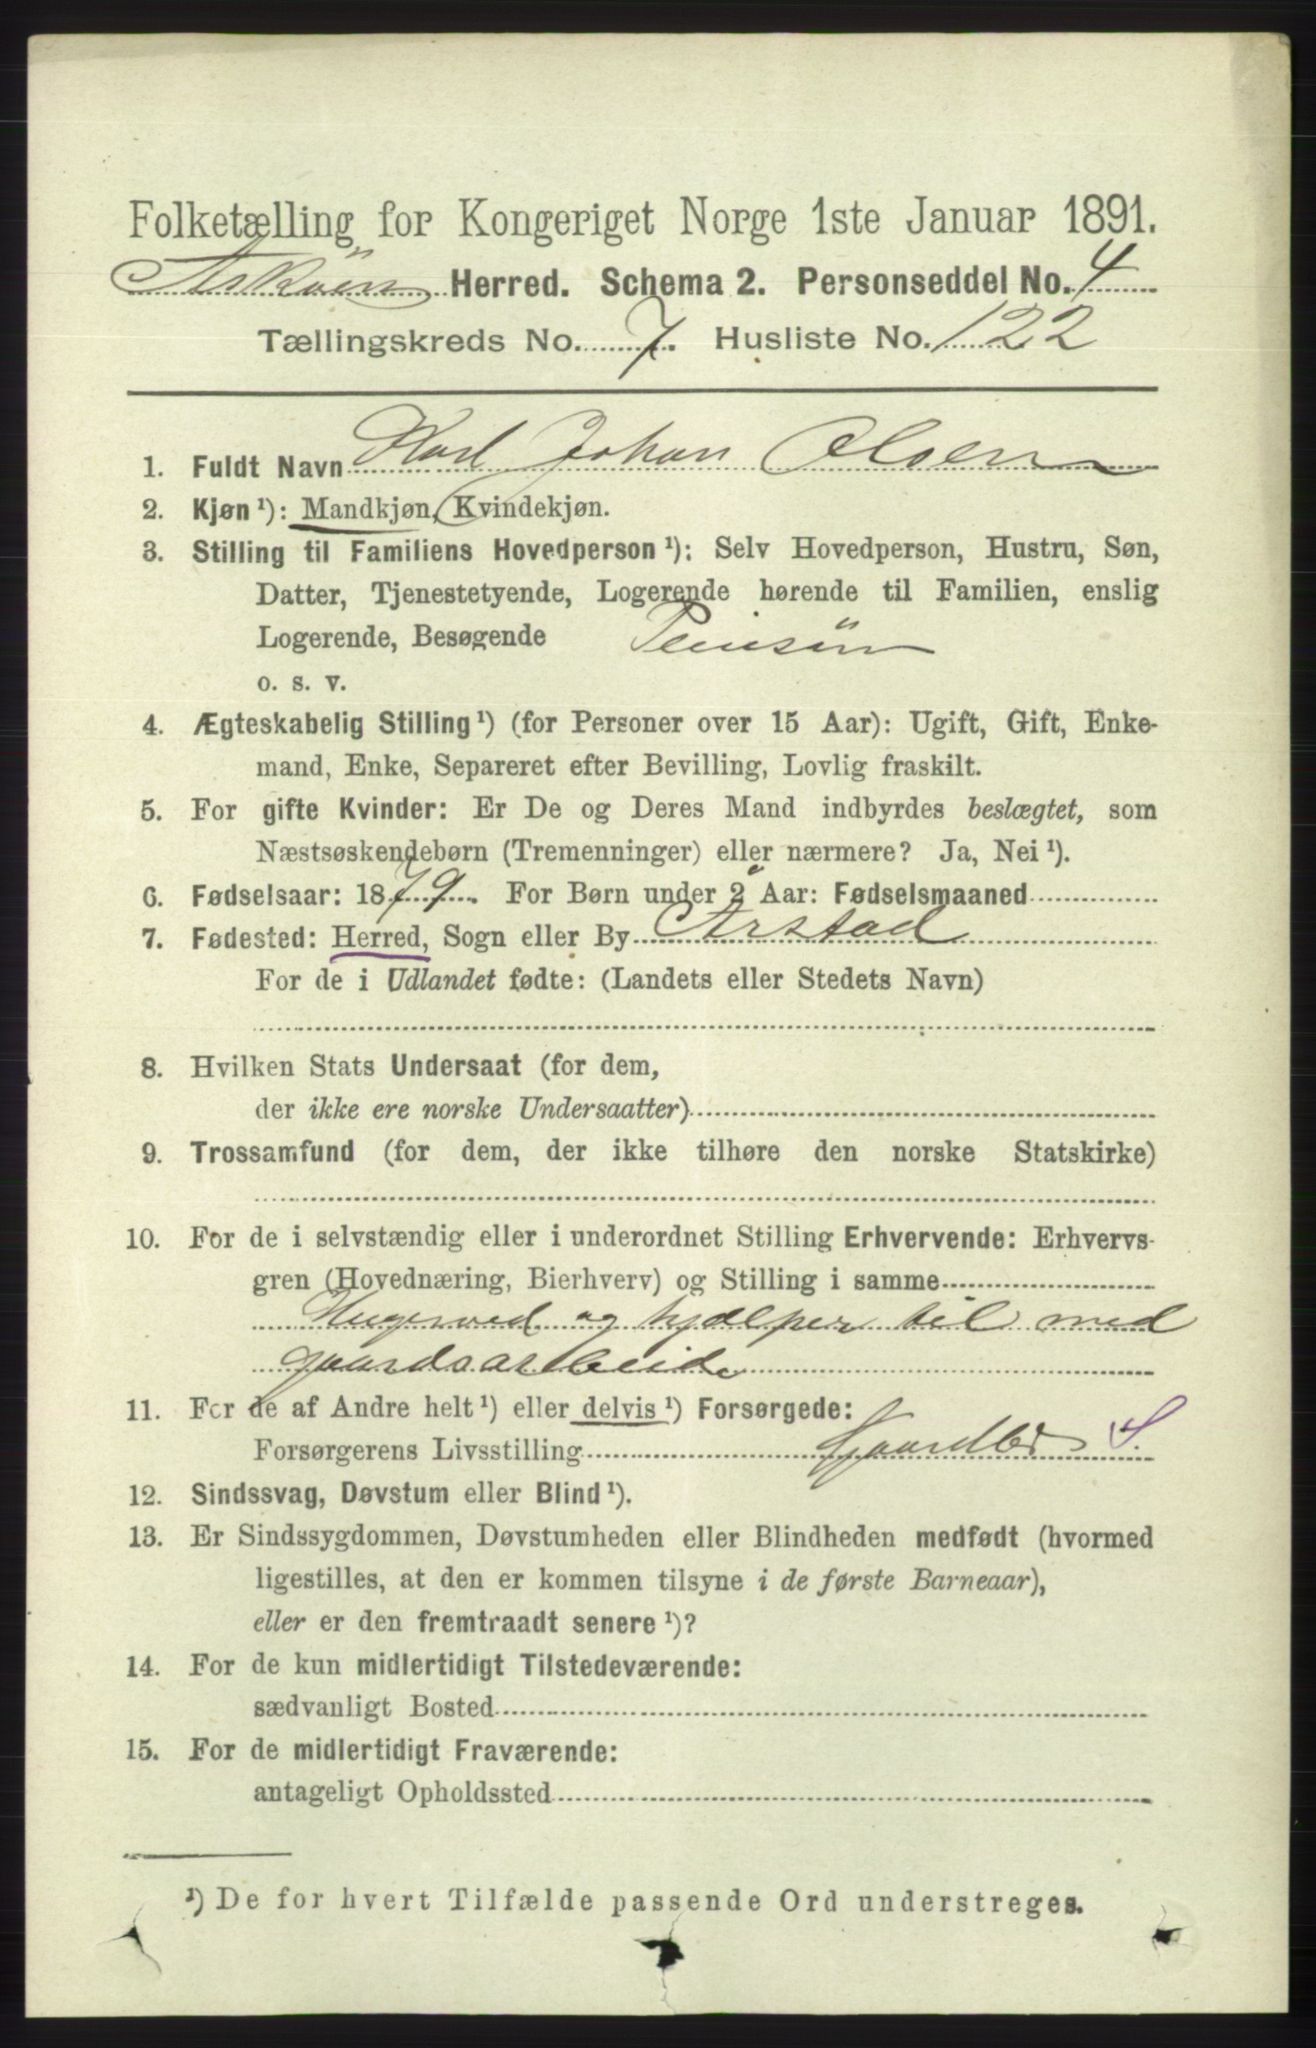 Folketælling for Kongeriget Norge 1ste Januar 1891.
Askøen Herred. Schema 2. Personseddel No. 4
Tællingskreds No. 7. Husliste No. 122
1. Fuldt Navn Karl Johan Olsen
2. Kjøn ¹): Mandkjøn, Kvindekjøn.
3. Stilling til Familiens Hovedperson ¹): Selv Hovedperson, Hustru, Søn,
Datter, Tjenestetyende, Logerende hørende til Familien, enslig
Logerende, Besøgende Pleiesön
o. s. v.
4. Ægteskabelig Stilling ¹) (for Personer over 15 Aar): Ugift, Gift, Enke-
mand, Enke, Separeret efter Bevilling, Lovlig fraskilt.
5. For gifte Kvinder: Er De og Deres Mand indbyrdes beslægtet, som
Næstsøskendebørn (Tremenninger) eller nærmere? Ja, Nei ¹).
6. Fødselsaar: 1879. For Børn under 2 Aar: Fødselsmaaned
7. Fødested: Herred, Sogn eller By Årstad
For de i Udlandet fødte: (Landets eller Stedets Navn)
8. Hvilken Stats Undersaat (for dem,
der ikke ere norske Undersaatter)
9. Trossamfund (for dem, der ikke tilhøre den norske Statskirke)
10. For de i selvstændig eller i underordnet Stilling Erhvervende: Erhvervs-
gren (Hovednæring, Bierhverv) og Stilling i samme
og hjælper til med
gaardsarbeide
11. For de af Andre helt ¹) eller delvis ¹) Forsørgede:
Forsørgerens Livsstilling Gaardbr S.
12. Sindssvag, Døvstum eller Blind ¹).
13. Er Sindssygdommen, Døvstumheden eller Blindheden medfødt (hvormed
ligestilles, at den er kommen tilsyne i de første Barneaar),
eller er den fremtraadt senere ¹)?
14. For de kun midlertidigt Tilstedeværende:
sædvanligt Bosted
15. For de midlertidigt Fraværende:
antageligt Opholdssted
¹) De for hvert Tilfælde passende Ord understreges.